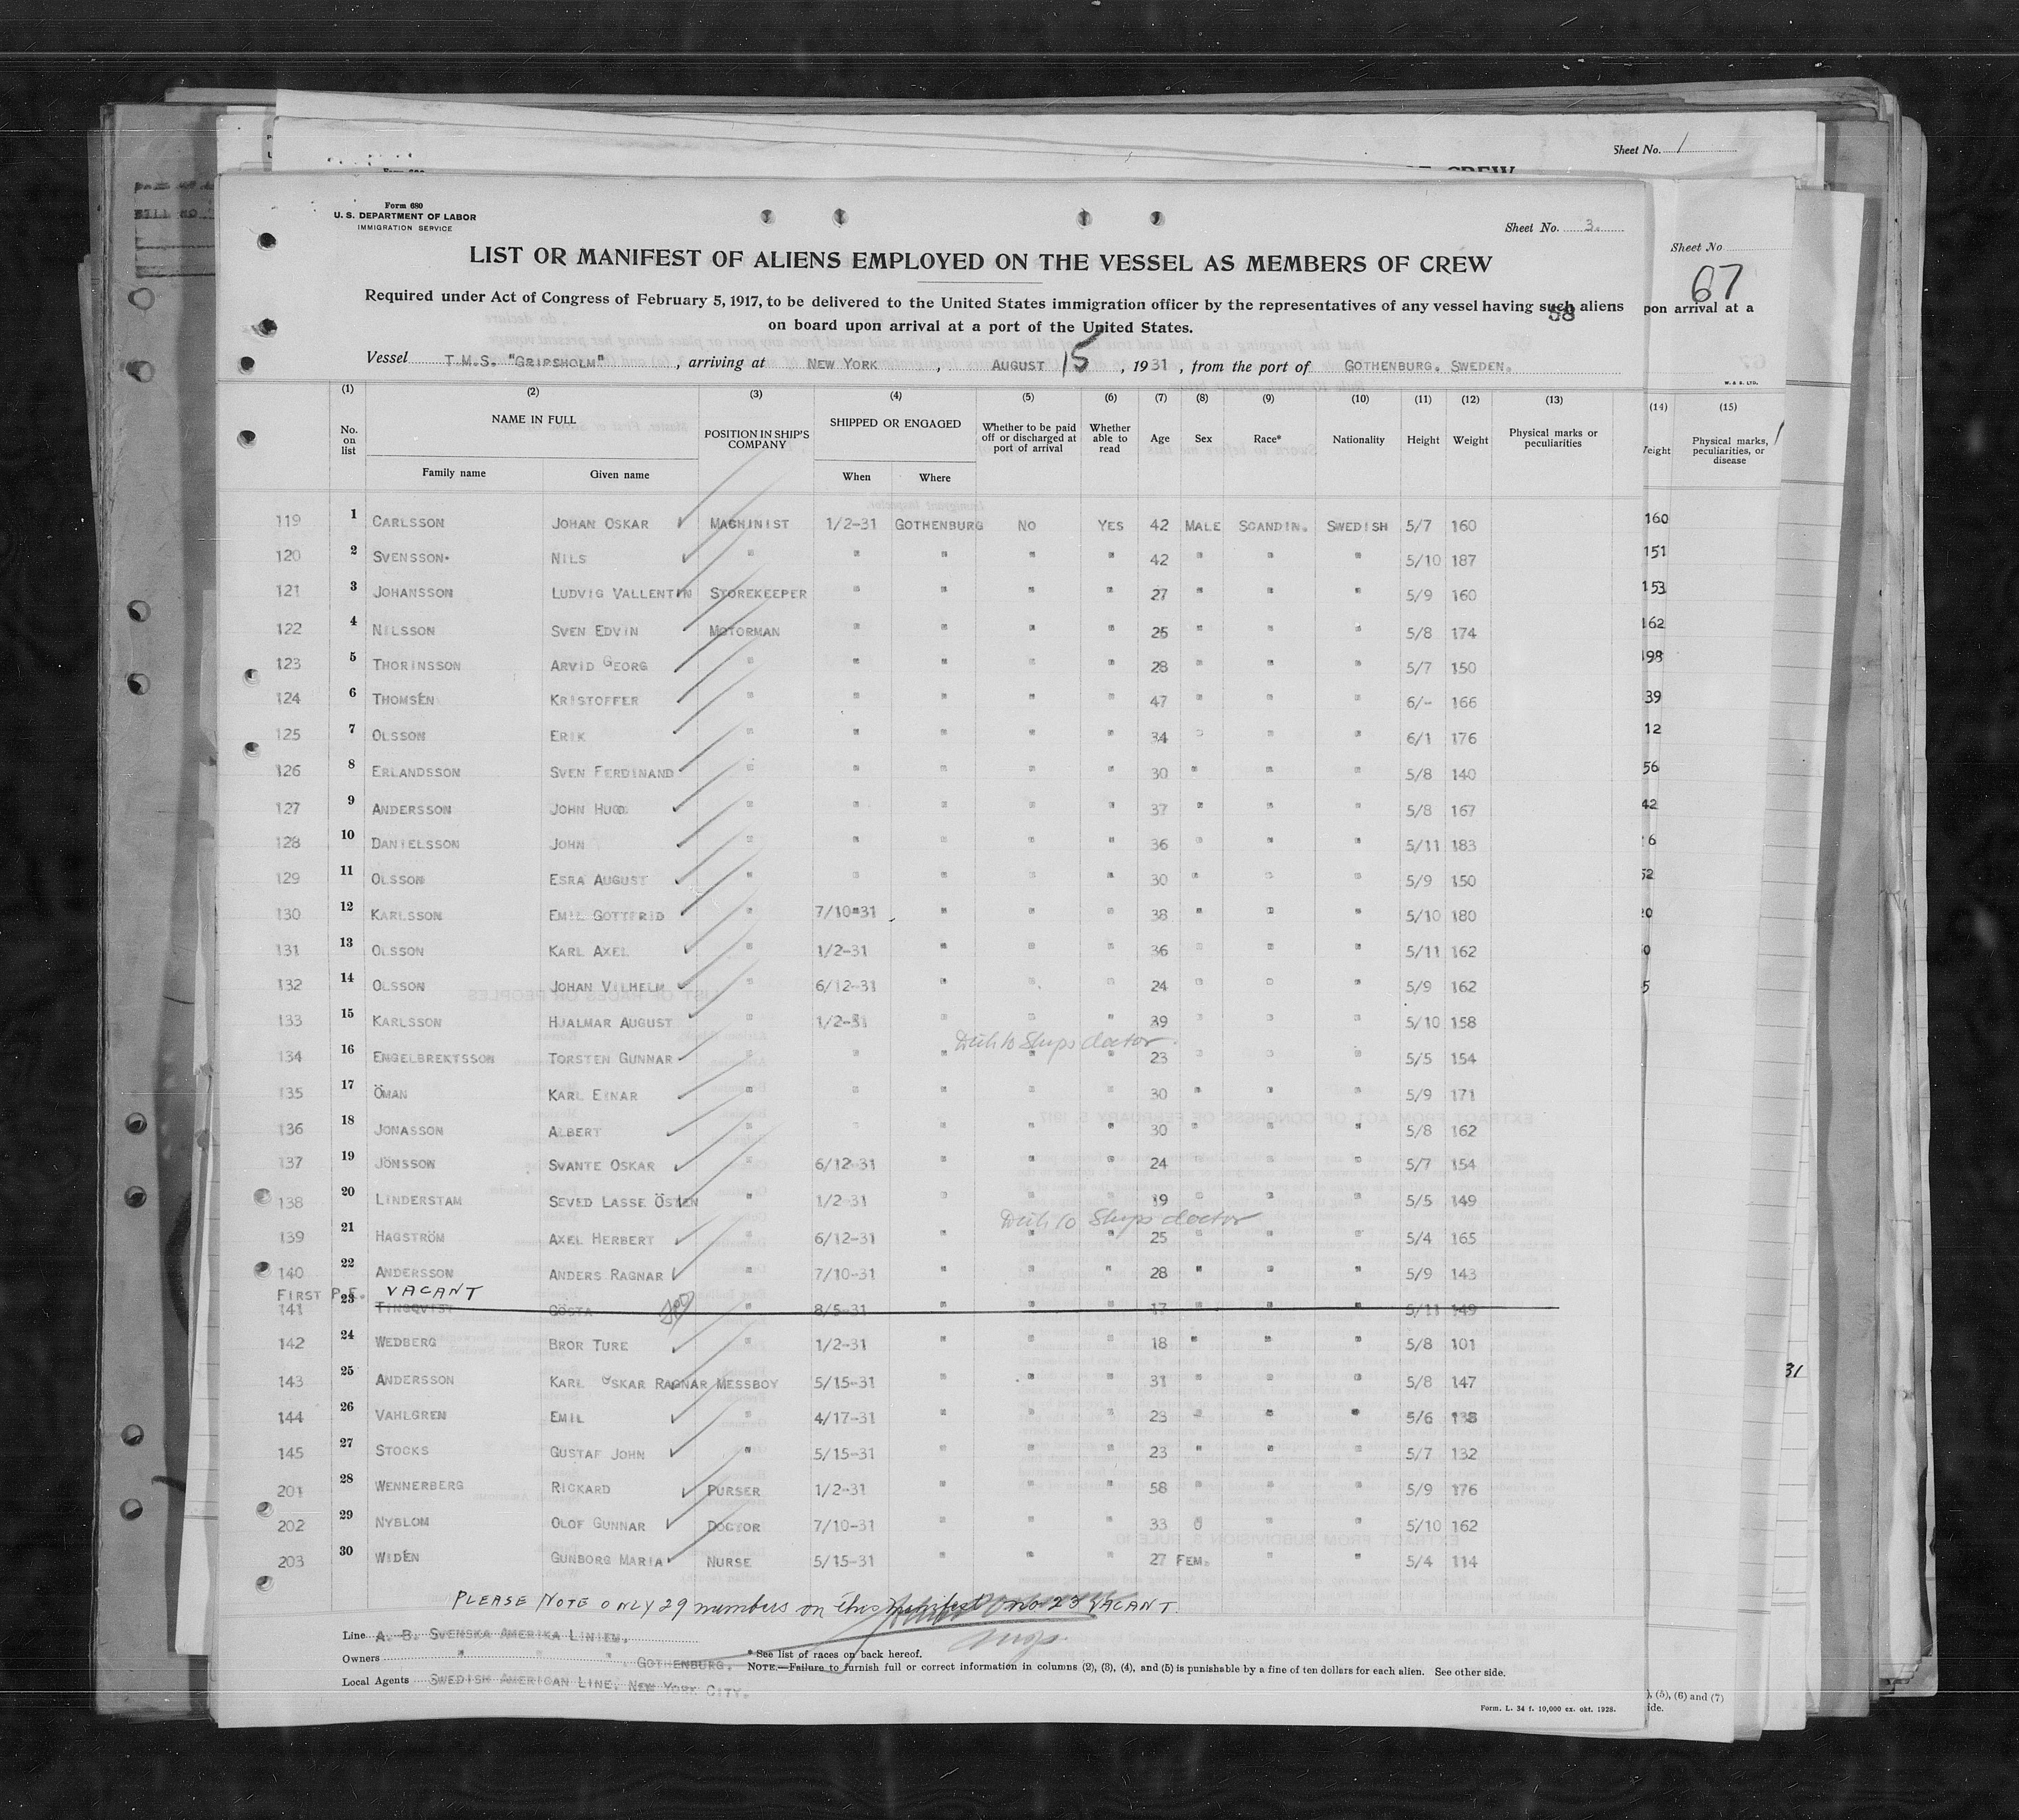 Sheet No. 1
Form 680
U. S. DEPARTMENT OF LABOR
IMMIGRATION SERVICE
Sheet No. 3.
Sheet No
67
LIST OR MANIFEST OF ALIENS EMPLOYED ON THE VESSEL AS MEMBERS OF CREW
Required under Act of Congress of February 5, 1917, to be delivered to the United States immigration officer by the representatives of any vessel having such aliens
on board upon arrival at a port of the United States.
58
pon arrival at a
Vessel T.M.S. "GRIPSHOLM", arriving at NEW YORK, AUGUST 15, 1931, from the port of GOTHENBURG. SWEDEN.
W. & S. LTD.
(1) (2) (3) (4) (5) (6) (7) (8) (9) (10) (11) (12) (13) (14) (15)
No. on list NAME IN FULL POSITION IN SHIP'S COMPANY SHIPPED OR ENGAGED Whether to be paid off or discharged at port of arrival Whether able to read Age Sex Race* Nationality Height Weight Physical marks or peculiarities
Family name Given name When Where
Physical marks, peculiarities, or disease
119 1 CARLSSON JOHAN OSKAR MACHINIST 1/2-31 GOTHENBURG NO YES 42 MALE SCANDIN. SWEDISH 5/7 160 160
120 2 SVENSSON NILS " " " " " 42 " " " 5/10 187 151
121 3 JOHANSSON LUDVIG VALLENTIN STOREKEEPER " " " " 27 " " " 5/9 160 153
122 4 NILSSON SVEN EDVIN MOTORMAN " " " " 25 " " " 5/8 174 162
123 5 THORINSSON ARVID GEORG " " " " " 28 " " " 5/7 150 198
124 6 THOMSÉN KRISTOFFER " " " " " 47 " " " 6/- 166 39
125 7 OLSSON ERIK " " " " " 34 " " " 6/1 176 12
126 8 ERLANDSSON SVEN FERDINAND " " " " " 30 " " " 5/8 140 56
127 9 ANDERSSON JOHN HUGO " " " " " 37 " " " 5/8 167 42
128 10 DANIELSSON JOHN " " " " " 36 " " " 5/11 183 6
129 11 OLSSON ESRA AUGUST " " " " " 30 " " " 5/9 150 52
130 12 KARLSSON EMIL GOTTFRID " 7/10-31 " " " 38 " " " 5/10 180 20
131 13 OLSSON KARL AXEL " 1/2-31 " " " 36 " " " 5/11 162 0
132 14 OLSSON JOHAN VILHELM " 6/12-31 " " " 24 " " " 5/9 162 5
133 15 KARLSSON HJALMAR AUGUST " 1/2-31 " " " 39 " " " 5/10 158
Ships doctor
134 16 ENGELBREKTSSON TORSTEN GUNNAR " " " " " 23 " " " 5/5 154
135 17 ÖMAN KARL EINAR " " " " " 30 " " " 5/9 171
136 18 JONASSON ALBERT " " " " " 30 " " " 5/8 162
137 19 JÖNSSON SVANTE OSKAR " 6/12-31 " " " 24 " " " 5/7 154
138 20 LINDERSTAM SEVED LASSE ÖSTEN " 1/2-31 " " " 19 " " " 5/5 149
Ships doctor
139 21 HAGSTRÖM AXEL HERBERT " 6/12-31 " " " 25 " " " 5/4 165
140 22 ANDERSSON ANDERS RAGNAR " 7/10-31 " " " 28 " " " 5/9 143
FIRST P.E. VACANT
141 23 TINGQVIST GÖSTA 8/5-31 " " " 17 " " " 5/11 149
142 24 WEDBERG BROR TURE " 1/2-31 " " " 18 " " " 5/8 101
143 25 ANDERSSON KARL OSKAR RAGNAR MESSBOY 5/15-31 " " " 31 " " " 5/8 147
144 26 VAHLGREN EMIL " 4/17-31 " " " 23 " " " 5/6 138
145 27 STOCKS GUSTAF JOHN " 5/15-31 " " " 23 " " " 5/7 132
201 28 WENNERBERG RICKARD PURSER 1/2-31 " " " 58 " " " 5/9 176
202 29 NYBLOM OLOF GUNNAR DOCTOR 7/10-31 " " " 33 " " " 5/10 162
203 30 WIDÉN GUNBORG MARIA NURSE 5/15-31 " " " 27 FEM. " " 5/4 114
31
PLEASE NOTE ONLY 29 members on this manifest no 23 VACANT.
Line A. B. SVENSKA AMERIKA LINIEN.
Owners " " " . GOTHENBURG.
Local Agents SWEDISH AMERICAN LINE. NEW YORK CITY.
* See list of races on back hereof.
NOTE.—Failure to furnish full or correct information in columns (2), (3), (4), and (5) is punishable by a fine of ten dollars for each alien. See other side.
), (5), (6) and (7)
ide.
Form. L. 34 f. 10,000 ex. okt. 1928.